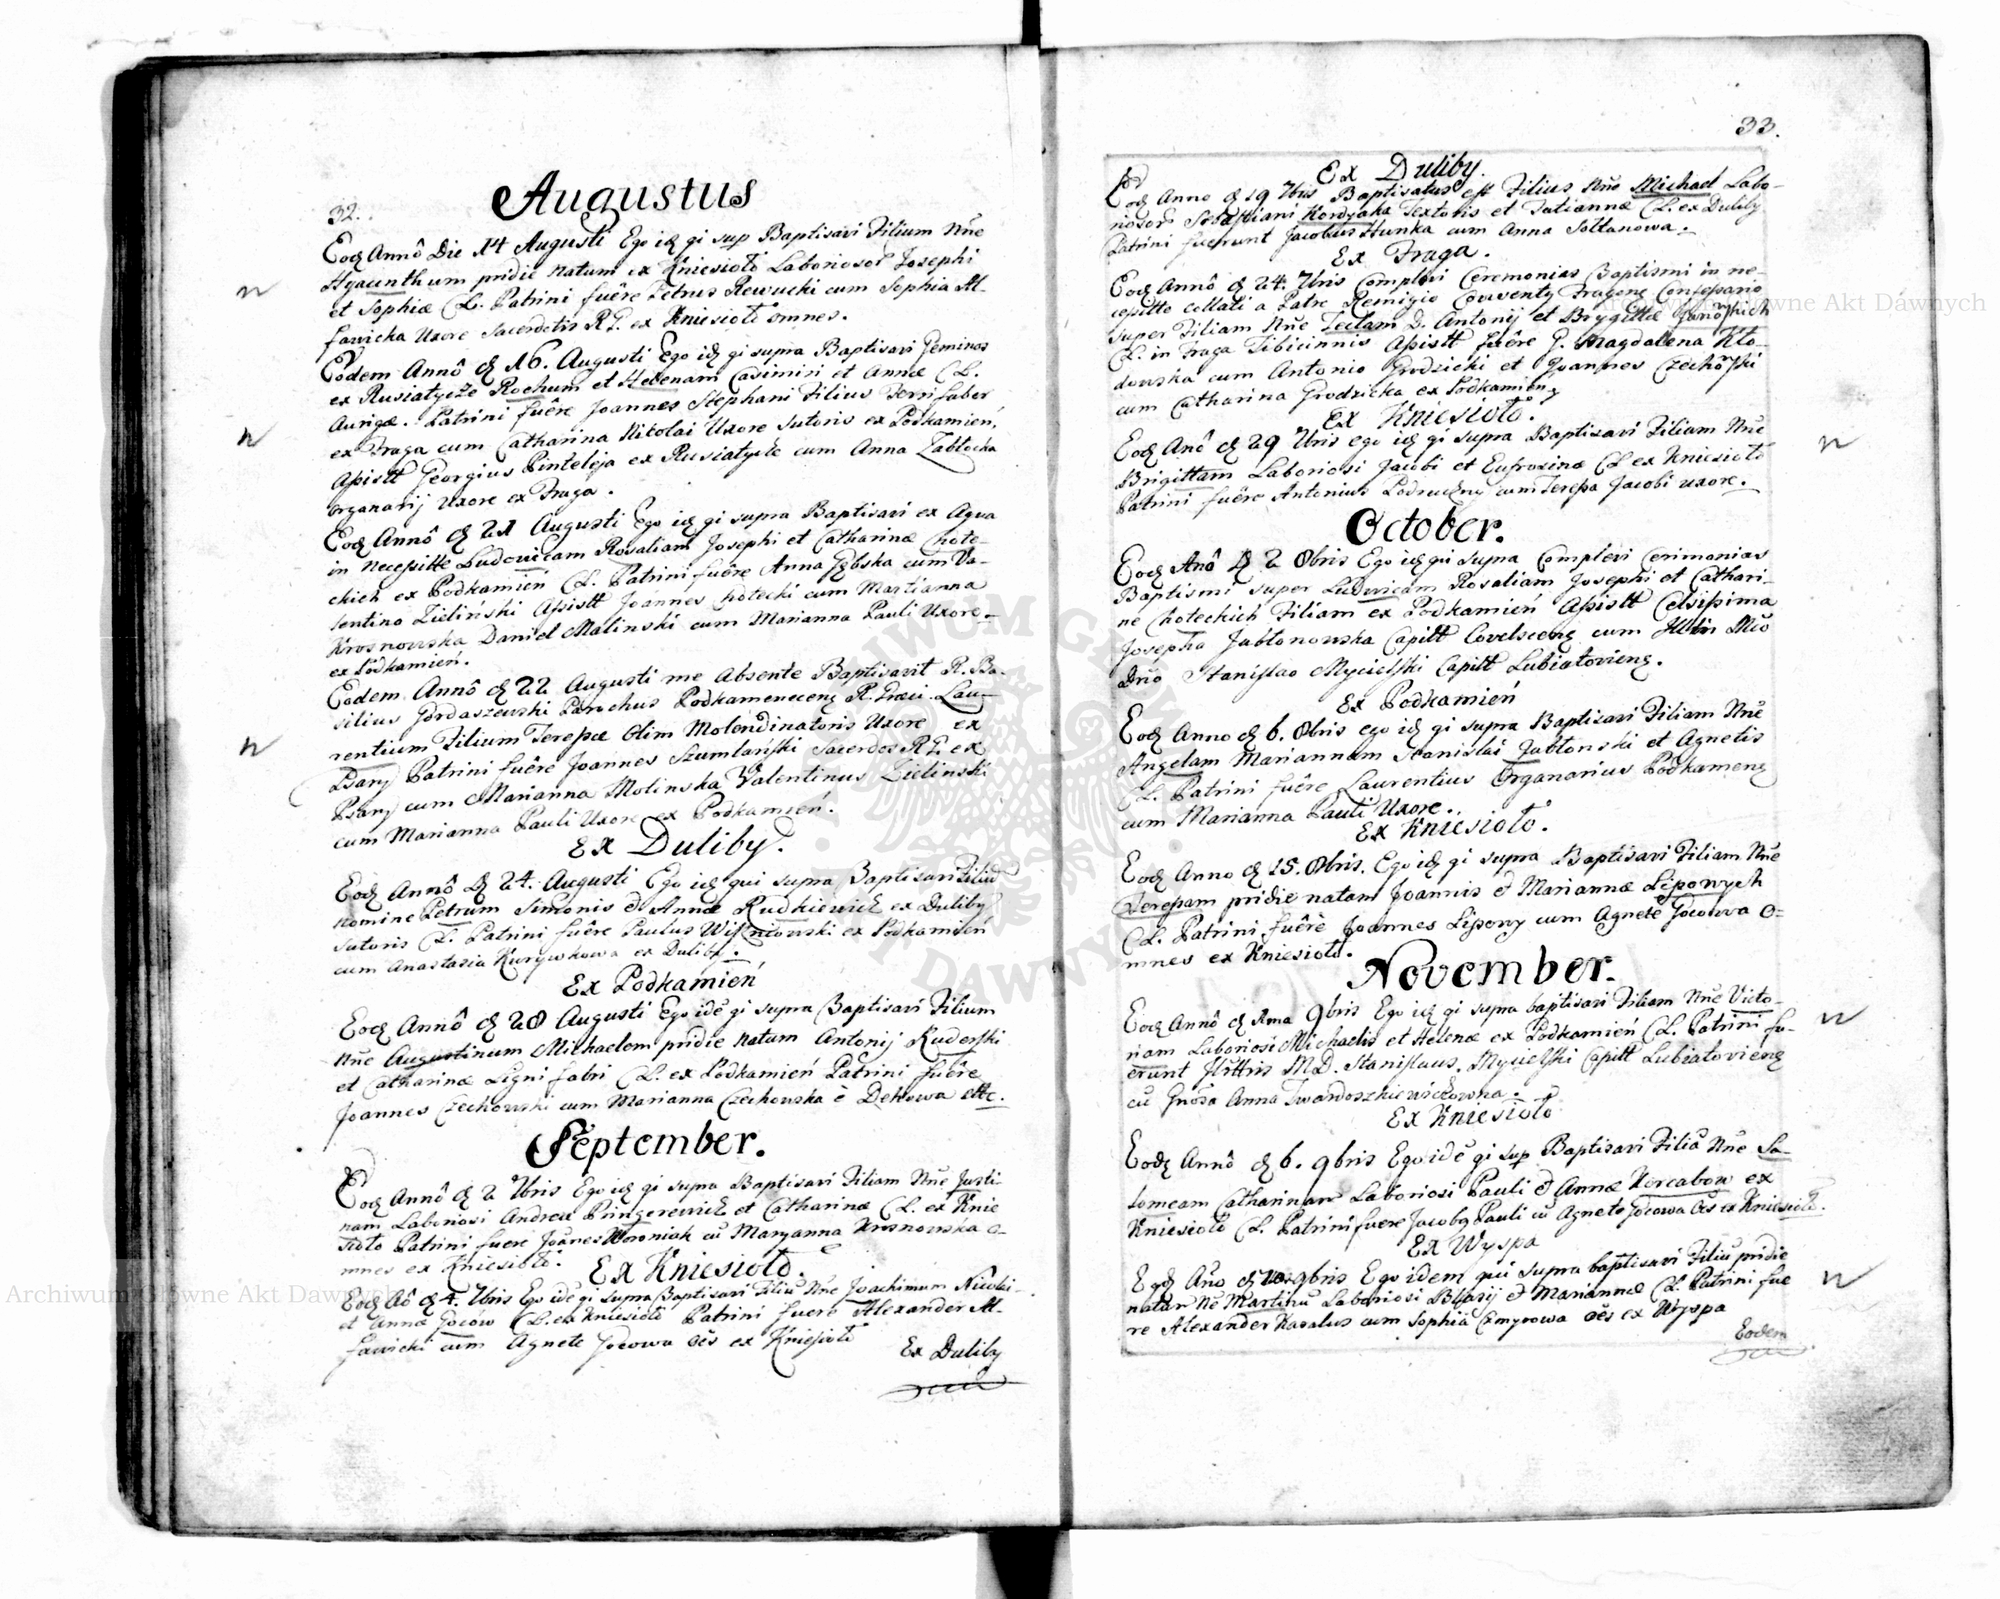 32.
Augustus
Eoq Annô Die 14 Augusti Ego iq gi sup Baptisavi Filium Nne
Hyacinthum pridie natum ex Kniesioło Laboriosor Josephi
et Sophiæ CL. Patrini fuêre Petrus Rewucki cum Sophia Al-
fawicka Uxore Sacerdotis R.G. ex Kniesioło omnes.
Eodem Annô q 16. Augusti Ego iq gi supra Baptisavi Geminos
ex Rusiatycze Rochum et Helenam Casimiri et Annæ CL.
Aurigæ. Patrini fuêre Joannes Stephani Filius Ferri Faber
ex Fraga cum Catharina Nikolai Uxore Sutoris ex Podkamień,
Assistt Georgius Pinteleja ex Rusiatycze cum Anna Zabłocka
organarij Uxore ex Fraga.
Eoq Annô q 21 Augusti Ego iq gi supra Baptisavi ex Aqua
in Necessitte Ludovicam Rosaliam Josephi et Catharinæ Chote-
ckich ex Podkamień CL. Patrini fuêre Anna Gębska cum Va-
lentino Zieliński Assistt Joannes Chotecki cum Martianna
Krosnowska Daniel Malinski cum Marianna Pauli Uxore
ex Podkamień.
Eodem Annô q 22 Augusti me Absente Baptisavit R. Ba-
silius Gordaszewski Parochus Podkameneceng R. Græci Lau-
rentium Filium Teressæ Olim Molendinatoris Uxore ex
Psary Patrini fuêre Joannes Szumlański Sacerdos R.G. ex
Psary cum Marianna Molinska Valentinus Zielinski
cum Marianna Pauli Uxore ex Podkamień.
Ex Duliby.
Eoq Annô q 24. Augusti Ego iq qui supra Baptisavi Filiū
nomine Petrum Simonis & Annæ Rudkiewicz ex Duliby
Sutoris CL. Patrini fuêre Paulus Wiszniowski ex Podkamień
cum Anastasia Kurywkowa ex Duliby.
Ex Podkamień
Eoq Annô q 28 Augusti Ego idē gi supra Baptisavi Filium
Nne Augustinum Michaelem pridie natum Antonij Ruderski
et Catharinæ Ligni fabri CL. ex Podkamień Patrini fuêre
Joannes Czechowski cum Marianna Czechowska è Dehowa
September.
Eoq Annô q 2 7bris Ego iq gi supra Baptisavi Filiam Nne Justi-
nam Laboriosi Andreæ et Catharinæ CL. ex Knie
sioło Patrini fuere Joānes Woroniak cū Maryanna Krosnowska o-
mnes ex Kniesioło.
Ex Kniesioło.
Eoq Aô q 4. 7bris Ego idē gi supra Baptisavi Filiū Nne Joachimum Nicolai
et Annæ Jocow CL. ex Kniesioło Patrini fuere Alexander Al-
fawicki cum Agnete Jocowa oēs ex Kniesioło
Ex Duliby
33.
Ex Duliby.
Eoq Anno q 19 7bris Baptisatus est Filius Nne Michael Labo-
riosor Sebastiani Kordyaka Textoris et Tatiannæ CL. ex Duliby
Patrini fuerunt Jacobus Hunka cum Anna Sołtanowa.
Ex Fraga.
Eoq Annô q 24. 7bris Complevi Ceremonias Baptismi in ne-
cessitte collati a Patre Remigio Conventg Fragens Confessario
super Filiam Nne Teclam D. Antonij et Brygittæ Janowskich
CL. in Fraga Tibicinnis Assistt fuêre G. Magdalena Kło-
dowska cum Antonio Grodzicki et Joannes Czechowski
cum Catharina Grodzicka ex Podkamień
Ex Kniesioło.
Eoq Anô q 29 7bris ego iq gi supra Baptisavi Filiam Nne
Brigittam Laboriosi Jacobi et Eufrosinæ CL ex Kniesioło
Patrini fuêre Antonius Podruczny cum Teressa Jacobi uxore.
October.
Eoq Anô q 2 8bris Ego iq gui supra Complevi Cerimonias
Baptismi super Ludovicam Rosaliam Josephi et Cathari-
næ Choteckich Filiam ex Podkamień Assistt Celsissima
Josepha Jabłonowska Capitt Covelsceng cum Illtri Mco
Dno Stanislao Mycielski Capitt Lubiatovieng.
Ex Podkamień
Eoq Anno q 6. 8bris ego iq gi supra Baptisavi Filiam Nne
Angelam Mariannam Stanislai Jabłonski et Agnetis
CL. Patrini fuêre Laurentius Organarius Podkameng
cum Marianna Pauli Uxore.
Ex Kniesioło.
Eoq Anno q 15. 8bris. Ego iq gi supra Baptisavi Filiam Nne
Teressam pridie natam Joannis & Mariannæ Lipowych
CL. Patrini fuêre Joannes Lipowy cum Agnete Jocowa o-
mnes ex Kniesioło.
November.
Eoq Annô q 1ma 9bris Ego iq gi supra baptisavi Filiam Nne Victo-
riam Laboriosi Michaelis et Helenæ ex Podkamień CL. Patrini fu-
erunt Illttris M.D. Stanislaus Mycielski Capitt Lubiatovieng
cū Gnosa Anna Twardoszkiewiczowna.
Ex Kniesioło
Eodq Annô q 6. 9bris Ego idē gi sup Baptisavi Filiā Nne Sa-
lomeam Catharinam Laboriosi Pauli & Annæ Korcabow ex
Kniesioło CL. Patrini fuere Jacobg Pauli cū Agnete Jocowa Oēs ex Kniesioło.
Ex Wyspa
Eodq Año q 10 9bris Ego idem qui supra baptisavi Filiū pridie
natum Ne Martinū Laboriosi Blasij & Mariannæ CL. Patrini fue
re Alexander Kasalus cum Sophia Czmyrowa oēs ex Wyspa
Eodem
Archiwum Główne Akt Dawnych
Archiwum Główne Akt Dawnych
ARCHIWUM GŁÓWNE AKT DAWNYCH